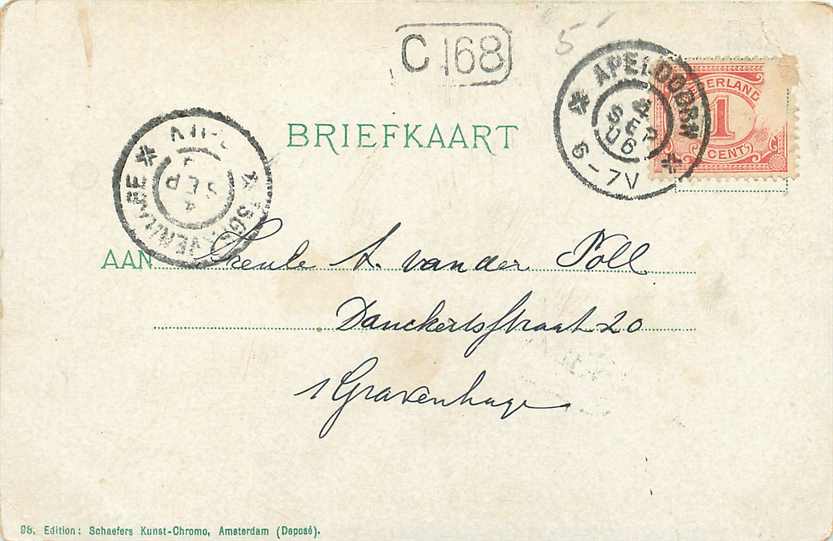 C 168
5
APELDOORN
4
SEP
06
6-7V
NEDERLAND
1
CENT
BRIEFKAART
'SGRAVENHAGE
4
SEP
AAN A. van der Poll
Danckertsstraat 20
's Gravenhage
98. Edition: Schaefers Kunst-Chromo, Amsterdam (Deposé).